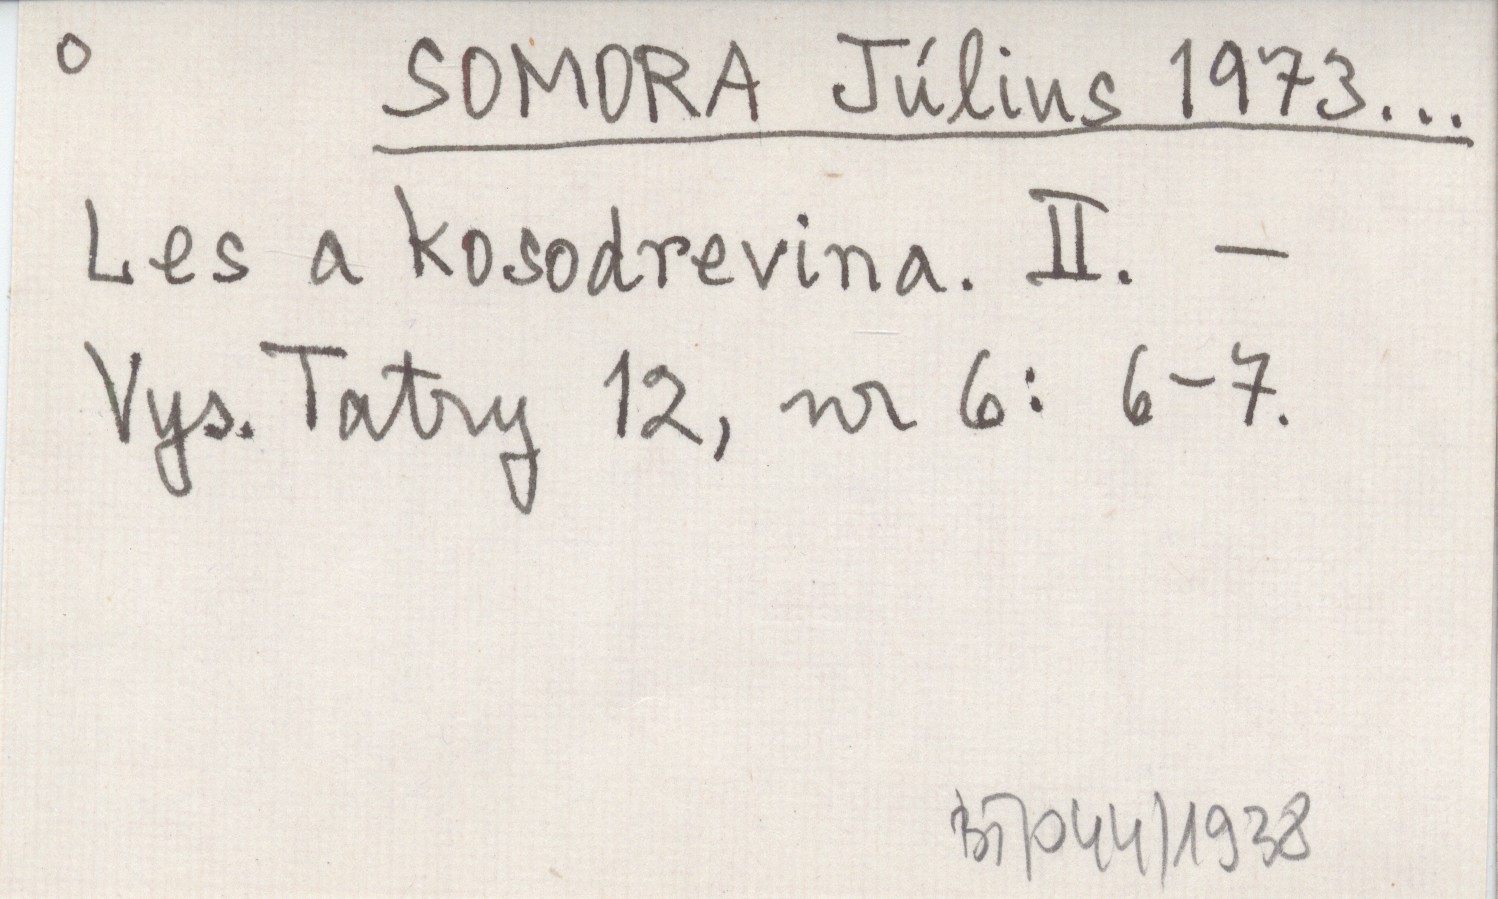 o SOMORA Július 1973...
Les a kosodrevina. II. –
Vys. Tatry 12, nr 6: 6–7.
1938